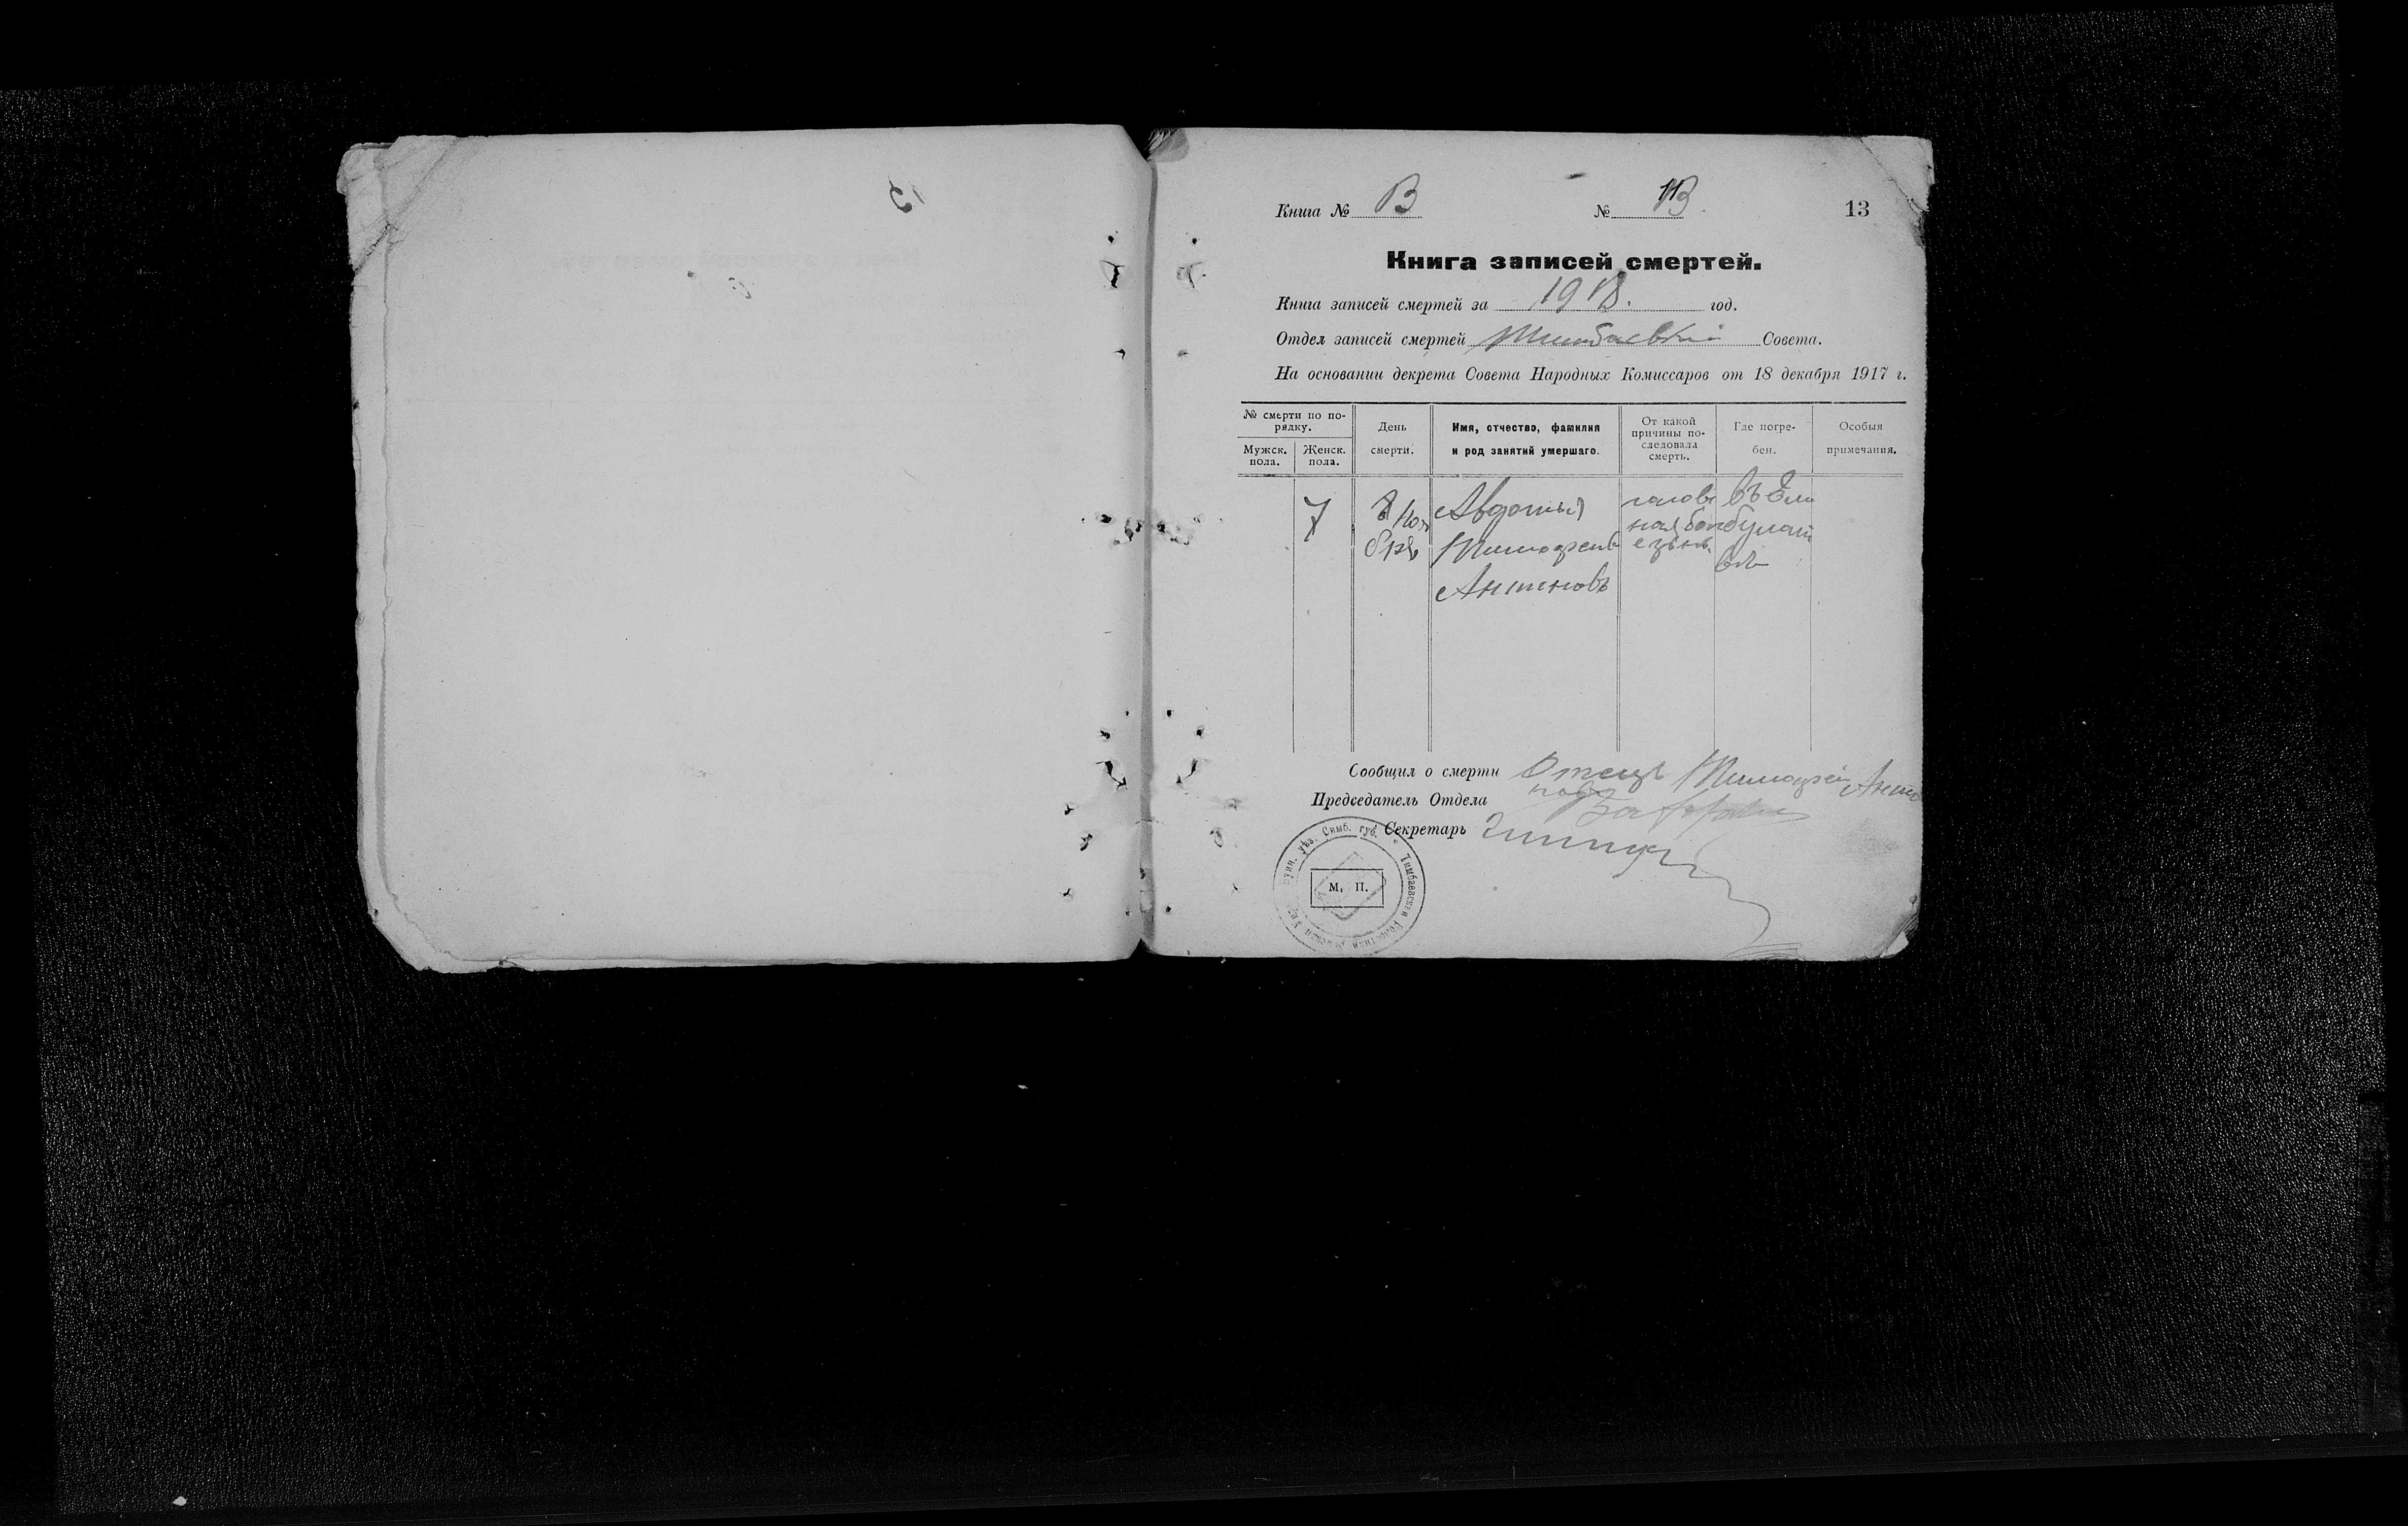 Книга № В № 13 13
Книга записей смертей.
Книга записей смертей за 1918. год.
Отдел записей смертей Тимбаевкий Совета.
На основании декрета Совета Народных Комиссаров от 18 декабря 1917 г.
№ смерти по по-
рядку.
Мужск.
пола.
Женск.
пола.
День
смерти.
Имя, отчество, фамилия
и род занятий умершаго.
От какой
причины по-
следовала
смерть.
Где погре-
бен.
Особыя
примечания.
7
8 Ноя
бря
Авдотья
Тимофеев
Антоновъ
голов
ная бол
езнь
въ Ели
булат
вѣ
Сообщил о смерти Отецъ Тимофей Анто
новъ
Председатель Отдела
Секретарь
уѣз. Симб. губ. * Тимбаевская Волостная Земская Упр.
М. П.